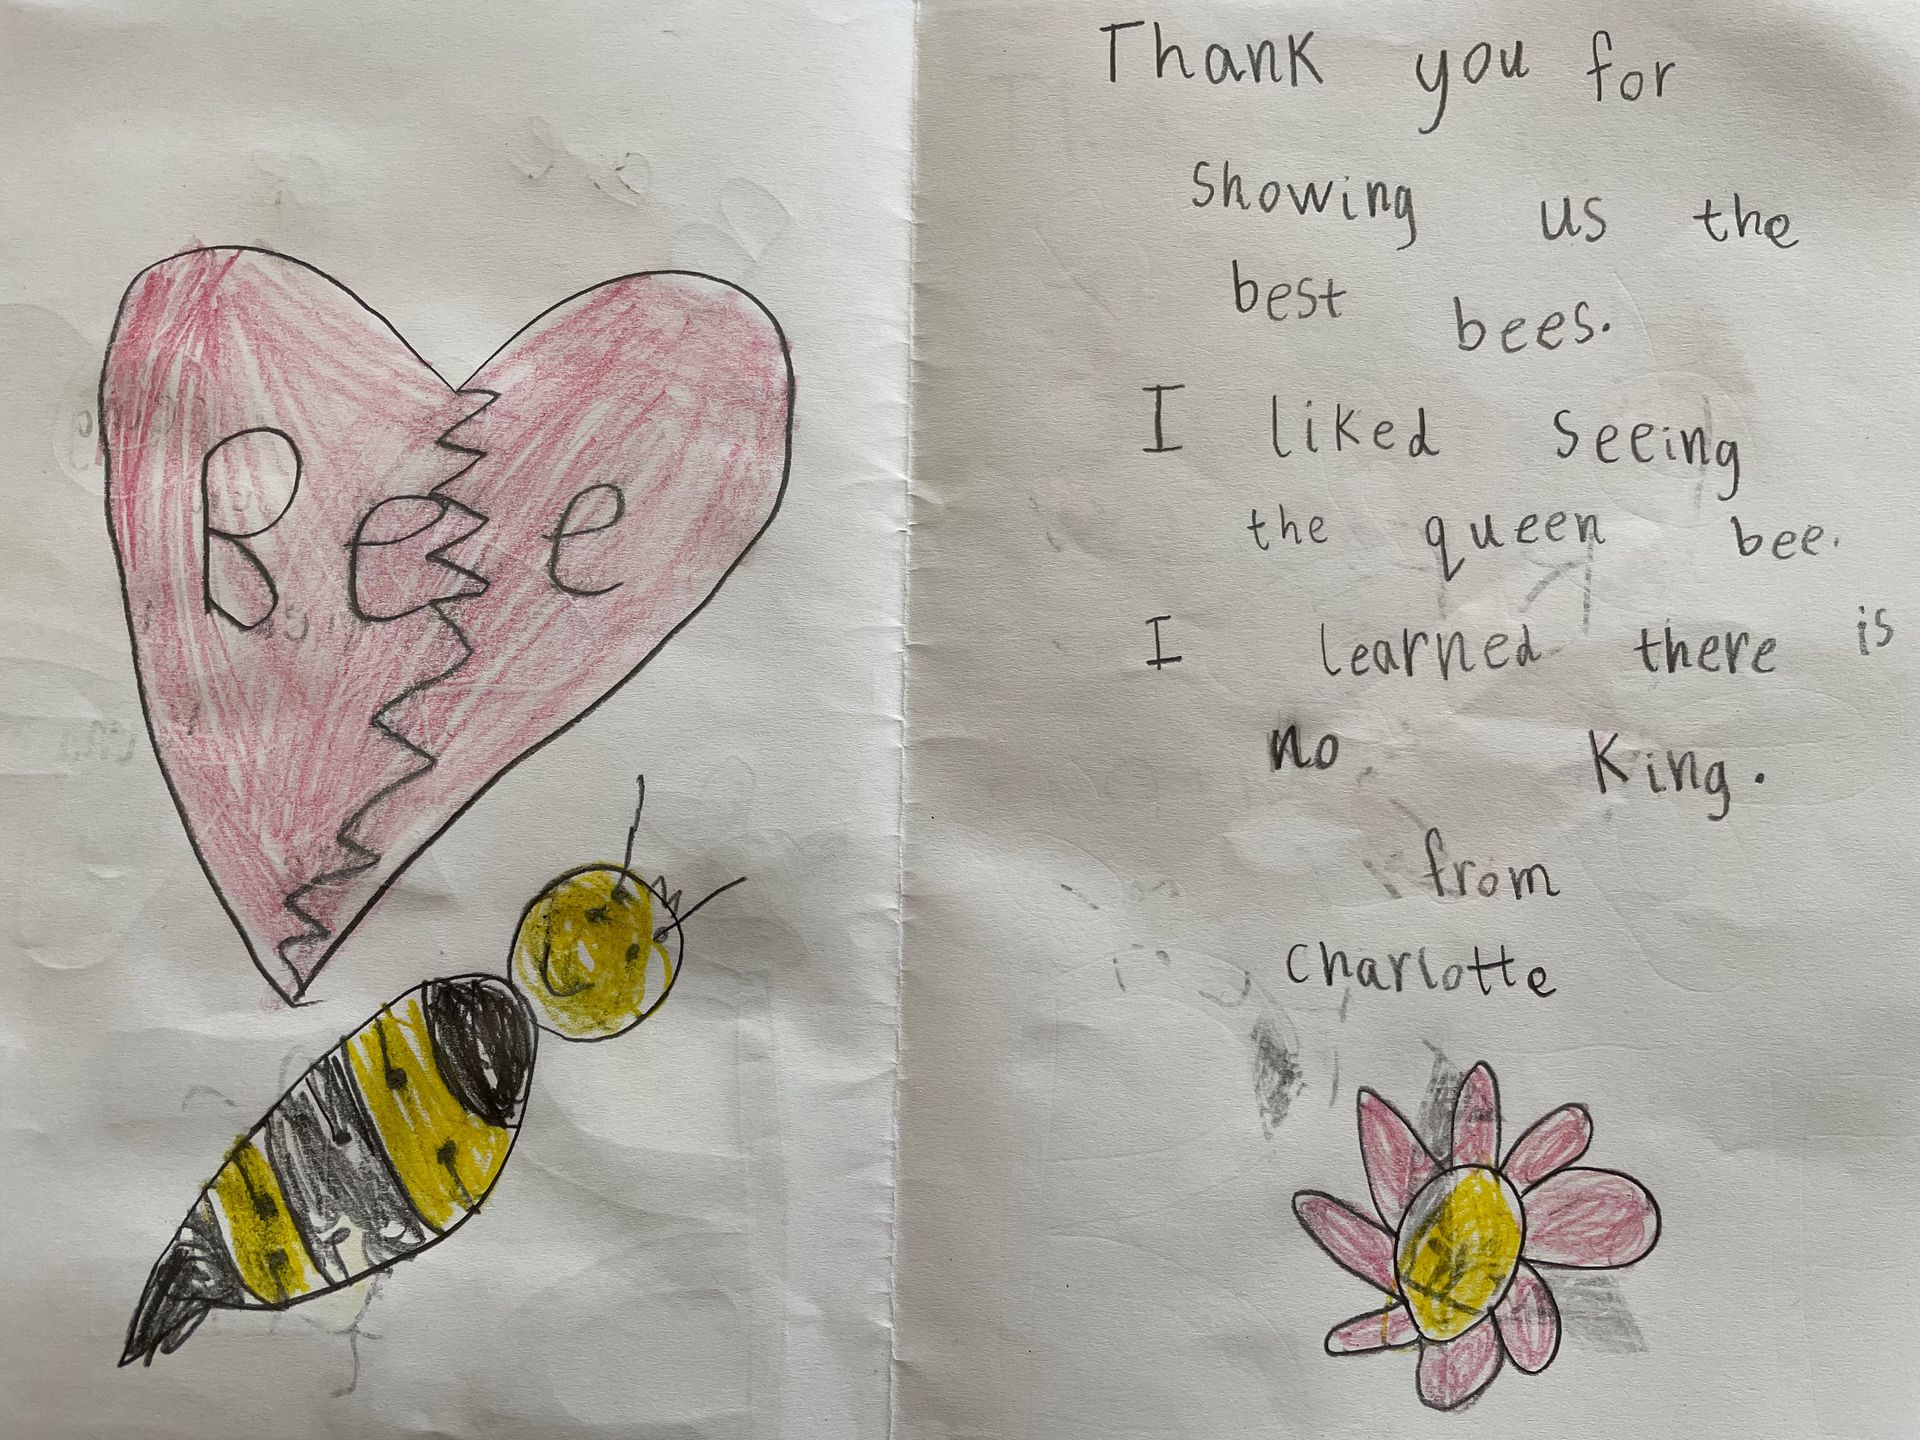 Bee
Thank you for
showing us the
best bees.
I liked seeing
the queen bee.
I learned there is
no King.
from
charlotte